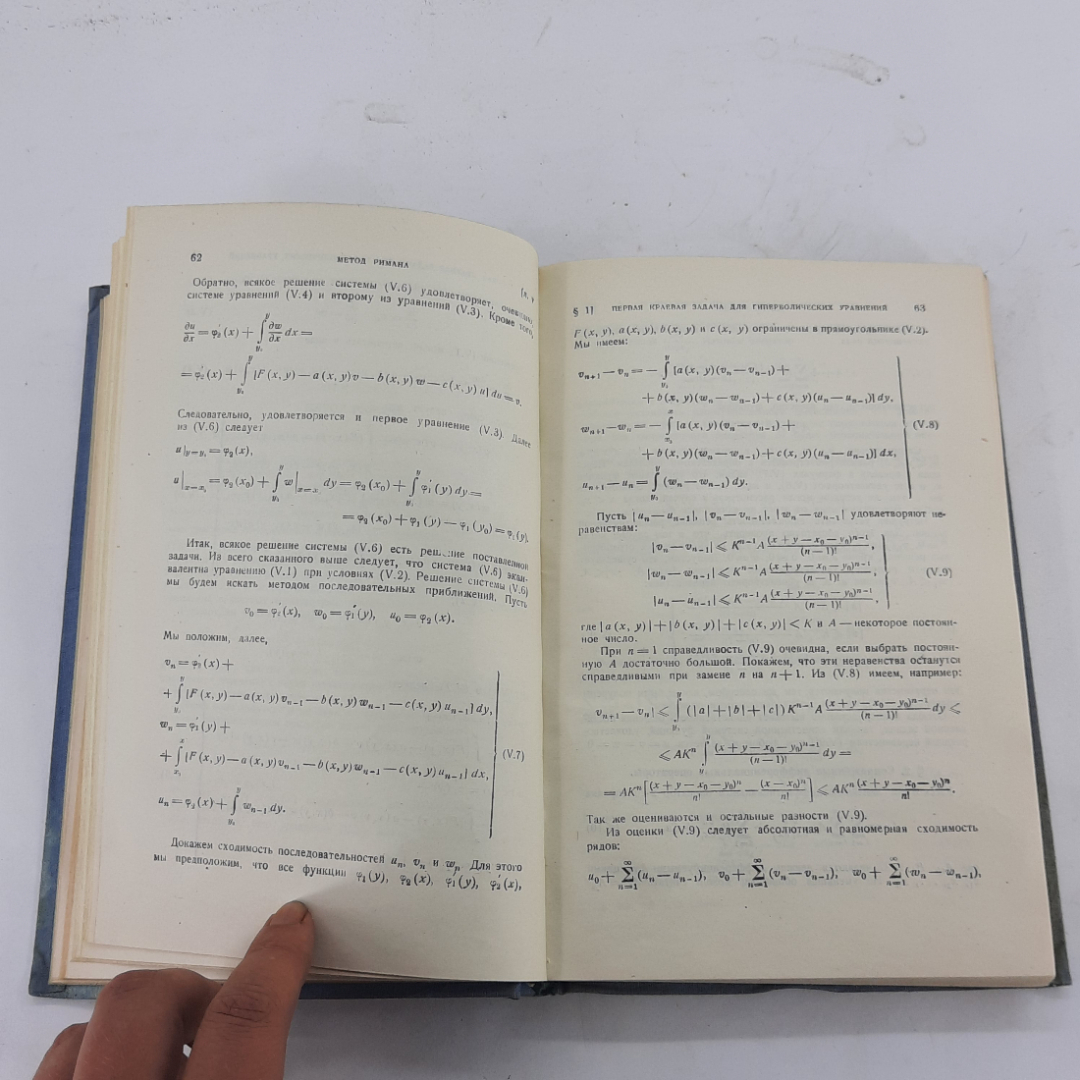 62
МЕТОД РИМАНА
Обратно, всякое решение системы (V.6) удовлетворяет,
системе уравнений (V.4) и второму из уравнений (V.3). Кроме того,
∂u/∂x = φ₂′(x) + ∫_{y₀}^{y} ∂w/∂x dx =
= φ₂′(x) + ∫_{y₀}^{y} [F(x, y) — a(x, y) v — b(x, y) w — c(x, y) u] dy = v.
Следовательно, удовлетворяется и первое уравнение (V.3). Далее
из (V.6) следует
u|_{y=y₀} = φ₂(x),
u|_{x=x₀} = φ₂(x₀) + ∫_{y₀}^{y} w|_{x=x₀} dy = φ₂(x₀) + ∫_{y₀}^{y} φ₁′(y) dy =
= φ₂(x₀) + φ₁(y) — φ₁(y₀) = φ₁(y).
Итак, всякое решение системы (V.6) есть решение поставленной
задачи. Из всего сказанного выше следует, что система (V.6) экви-
валентна уравнению (V.1) при условиях (V.2). Решение системы (V.6)
мы будем искать методом последовательных приближений. Пусть
v₀ = φ₂′(x), w₀ = φ₁′(y), u₀ = φ₂(x).
Мы положим, далее,
vₙ = φ₂′(x) +
+ ∫_{y₀}^{y} [F(x, y) — a(x, y) vₙ₋₁ — b(x, y) wₙ₋₁ — c(x, y) uₙ₋₁] dy,
wₙ = φ₁′(y) +
+ ∫_{x₀}^{x} [F(x, y) — a(x, y) vₙ₋₁ — b(x, y) wₙ₋₁ — c(x, y) uₙ₋₁] dx,
(V.7)
uₙ = φ₂(x) + ∫_{y₀}^{y} wₙ₋₁ dy.
Докажем сходимость последовательностей uₙ, vₙ и wₙ. Для этого
мы предположим, что все функции φ₁(y), φ₂(x), φ₁′(y), φ₂′(x),
§ 1]
ПЕРВАЯ КРАЕВАЯ ЗАДАЧА ДЛЯ ГИПЕРБОЛИЧЕСКИХ УРАВНЕНИЙ
63
F(x, y), a(x, y), b(x, y) и c(x, y) ограничены в прямоугольнике (V.2).
Мы имеем:
vₙ₊₁ — vₙ = — ∫_{y₀}^{y} [a(x, y)(vₙ — vₙ₋₁) +
+ b(x, y)(wₙ — wₙ₋₁) + c(x, y)(uₙ — uₙ₋₁)] dy,
wₙ₊₁ — wₙ = — ∫_{x₀}^{x} [a(x, y)(vₙ — vₙ₋₁) +
(V.8)
+ b(x, y)(wₙ — wₙ₋₁) + c(x, y)(uₙ — uₙ₋₁)] dx,
uₙ₊₁ — uₙ = ∫_{y₀}^{y} (wₙ — wₙ₋₁) dy.
Пусть |uₙ — uₙ₋₁|, |vₙ — vₙ₋₁|, |wₙ — wₙ₋₁| удовлетворяют не-
равенствам:
|vₙ — vₙ₋₁| ⩽ Kⁿ⁻¹A (x + y — x₀ — y₀)ⁿ⁻¹/(n — 1)!,
|wₙ — wₙ₋₁| ⩽ Kⁿ⁻¹A (x + y — x₀ — y₀)ⁿ⁻¹/(n — 1)!,
(V.9)
|uₙ — uₙ₋₁| ⩽ Kⁿ⁻¹A (x + y — x₀ — y₀)ⁿ⁻¹/(n — 1)!,
где |a(x, y)| + |b(x, y)| + |c(x, y)| < K и A — некоторое постоян-
ное число.
При n = 1 справедливость (V.9) очевидна, если выбрать постоян-
ную A достаточно большой. Покажем, что эти неравенства останутся
справедливыми при замене n на n + 1. Из (V.8) имеем, например:
vₙ₊₁ — vₙ| ⩽ ∫_{y₀}^{y} (|a| + |b| + |c|) Kⁿ⁻¹A (x + y — x₀ — y₀)ⁿ⁻¹/(n — 1)! dy ⩽
⩽ AKⁿ ∫_{y₀}^{y} (x + y — x₀ — y₀)ⁿ⁻¹/(n — 1)! dy =
= AKⁿ [(x + y — x₀ — y₀)ⁿ/n! — (x — x₀)ⁿ/n!] ⩽ AKⁿ (x + y — x₀ — y₀)ⁿ/n!.
Так же оцениваются и остальные разности (V.9).
Из оценки (V.9) следует абсолютная и равномерная сходимость
рядов:
u₀ + ∑_{n=1}^{∞} (uₙ — uₙ₋₁), v₀ + ∑_{n=1}^{∞} (vₙ — vₙ₋₁), w₀ + ∑_{n=1}^{∞} (wₙ — wₙ₋₁),